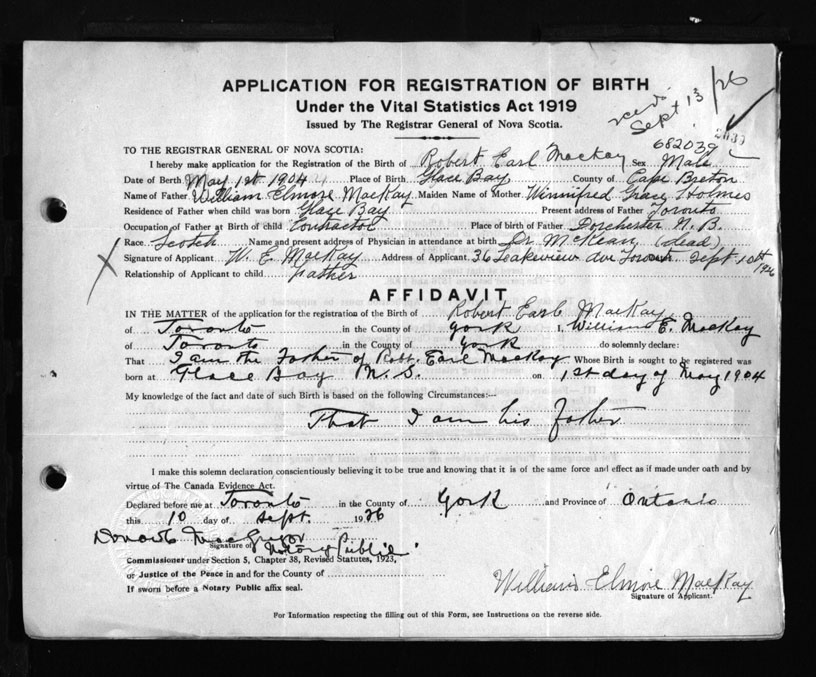 APPLICATION FOR REGISTRATION OF BIRTH
Under the Vital Statistics Act 1919
Issued by The Registrar General of Nova Scotia.
Sept 13/26
2039
682039
TO THE REGISTRAR GENERAL OF NOVA SCOTIA:
I hereby make application for the Registration of the Birth of Robert Earl Mackay Sex Male
Date of Berth May 1st 1904 Place of Birth Glace Bay County of Cape Breton
Name of Father William Elmore MacKay Maiden Name of Mother Winnifred Grace Holmes
Residence of Father when child was born Glace Bay Present address of Father Toronto
Occupation of Father at Birth of child Contractor Place of Birth of Father Dorchester N.B.
Race Scotch Name and present address of Physician in attendance at birth Dr McKean (dead)
Signature of Applicant W. E. MacKay Address of Applicant 36 Lakeview Ave Toronto Sept 10th 1926
Relationship of Applicant to child Father
AFFIDAVIT
IN THE MATTER of the application for the registration of the Birth of Robert Earl MacKay
of Toronto in the County of York I, William E. MacKay
of Toronto in the County of York do solemnly declare:
That I am the Father of Robt. Earl MacKay Whose Birth is sought to be registered was
born at Glace Bay N.S. on 1st day of May 1904
My knowledge of the fact and date of such Birth is based on the following Circumstances:—
That I am his father
I make this solemn declaration conscientiously believing it to be true and knowing that it is of the same force and effect as if made under oath and by
virtue of The Canada Evidence Act.
Declared before me at Toronto in the County of York and Province of Ontario
this 10 day of Sept. 1926
Donald MacGregor
Signature of Notary Public
Commissioner under Section 5, Chapter 38, Revised Statutes, 1923,
or Justice of the Peace in and for the County of
If sworn before a Notary Public affix seal.
William Elmore MacKay
Signature of Applicant.
For Information respecting the filling out of this Form, see Instructions on the reverse side.